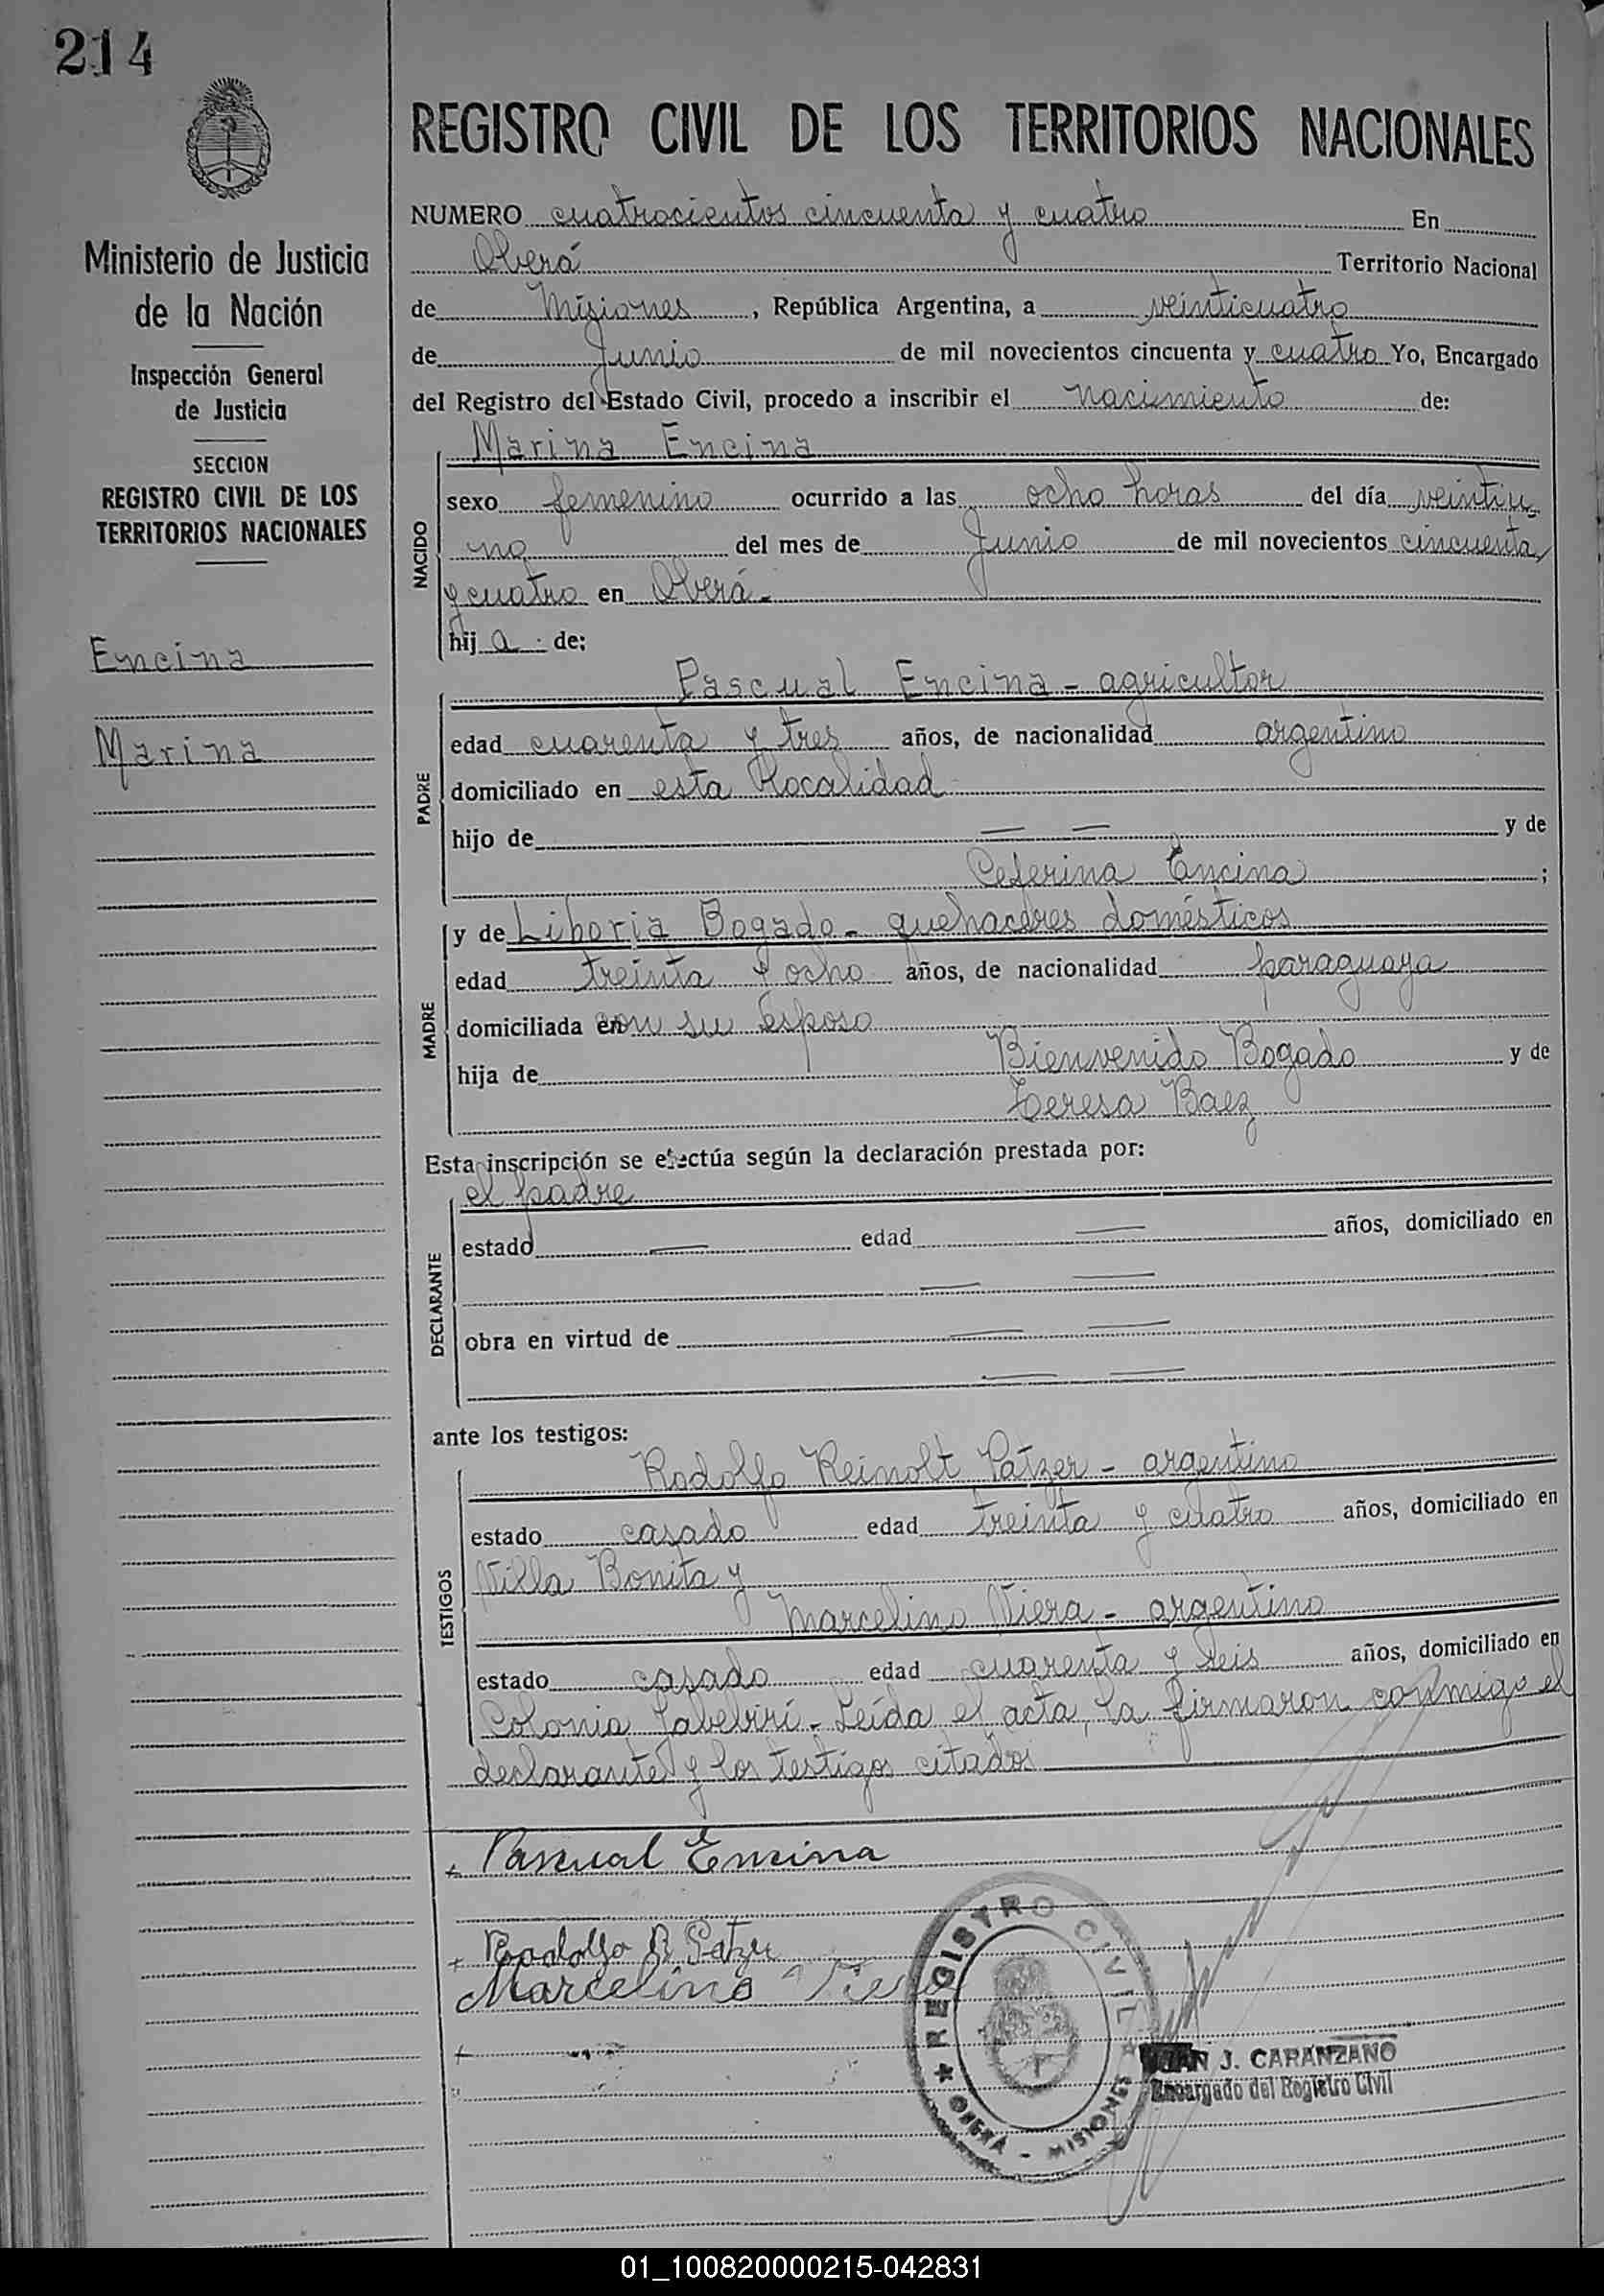 214
REGISTRO CIVIL DE LOS TERRITORIOS NACIONALES
Ministerio de Justicia
de la Nación
Inspección General
de Justicia
SECCION
REGISTRO CIVIL DE LOS
TERRITORIOS NACIONALES
Encina
Marina
NUMERO cuatrocientos cincuenta y cuatro En
Oberá Territorio Nacional
de Misiones, República Argentina, a veinticuatro
de Junio de mil novecientos cincuenta y cuatro Yo, Encargado
del Registro del Estado Civil, procedo a inscribir el nacimiento de:
NACIDO
Marina Encina
sexo femenino ocurrido a las ocho horas del día veintiu-
no del mes de Junio de mil novecientos cincuenta
y cuatro en Oberá-
hija de:
PADRE
Pascual Encina - agricultor
edad cuarenta y tres años, de nacionalidad argentino
domiciliado en esta localidad
hijo de — — y de
Ceferina Encina ;
MADRE
y de Liboria Bogado - quehaceres domésticos
edad treinta y ocho años, de nacionalidad paraguaya
domiciliada en con su esposo
hija de Bienvenido Bogado y de
Teresa Baez
Esta inscripción se efectúa según la declaración prestada por:
DECLARANTE
el padre
estado — edad — años, domiciliado en
— —
obra en virtud de — —
— —
ante los testigos:
TESTIGOS
Rodolfo Reinolt Patzer - argentino
estado casado edad treinta y cuatro años, domiciliado en
Villa Bonita y
Marcelino Viera - argentino
estado casado edad cuarenta y seis años, domiciliado en
Colonia Yabebirí - Leída el acta, la firmaron conmigo el
declarante y los testigos citados
Pascual Encina
Rodolfo R Patzer
Marcelino Viera
REGISTRO CIVIL
OBERÁ - MISIONES
J. CARANZANO
Encargado del Registro Civil
01_100820000215-042831